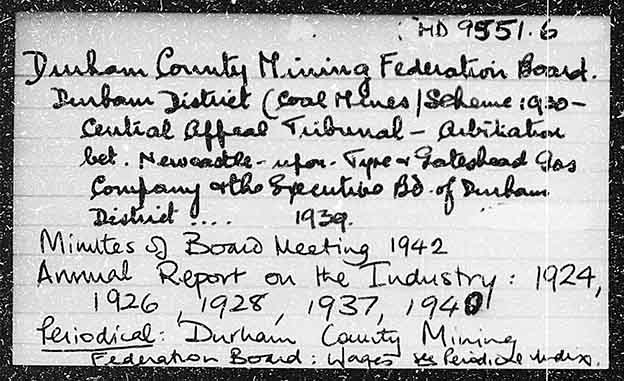 HD 9551.6
Durham County Mining Federation Board.
Durham District (Coal Mines) Scheme: 1930 -
Central Appeal Tribunal - Arbitration
bet. Newcastle-upon-Tyne & Gateshead Gas
Company & the Executive Bd. of Durham
District .... 1939.
Minutes of Board Meeting 1942
Annual Report on the Industry: 1924,
1926, 1928, 1937, 1940
Periodical: Durham County Mining
Federation Board: Wages Periodical Index.